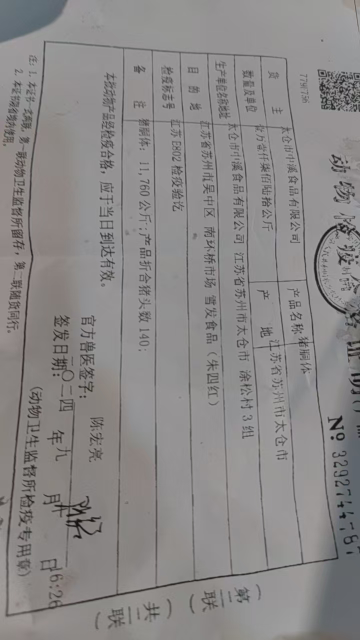 7790736
动物检疫合格证明
№ 3292744787
货 主 太仓市中溪食品有限公司 产品名称 猪胴体
数量及单位 壹万壹仟柒佰陆拾公斤 产 地 江苏省苏州市太仓市
生产单位名称地址 太仓市中溪食品有限公司 江苏省苏州市太仓市 涂松村3组
目 的 地 江苏省苏州市吴中区 南环桥市场 雪发食品(朱四红)
检疫标志号 江苏 E802 检疫验讫
备 注 猪胴体: 11,760 公斤; 产品折合猪头数 140;
本批动物产品经检疫合格,应于当日到达有效。
官方兽医签字: 陈宏亮
签发日期: 二〇二四 年 九 月 日 16:26
(动物卫生监督所检疫专用章)
注: 1. 本证书一式两联,第一联动物卫生监督所留存,第二联随货同行。
2. 本证书限省境内使用。
(第二联 共二联)